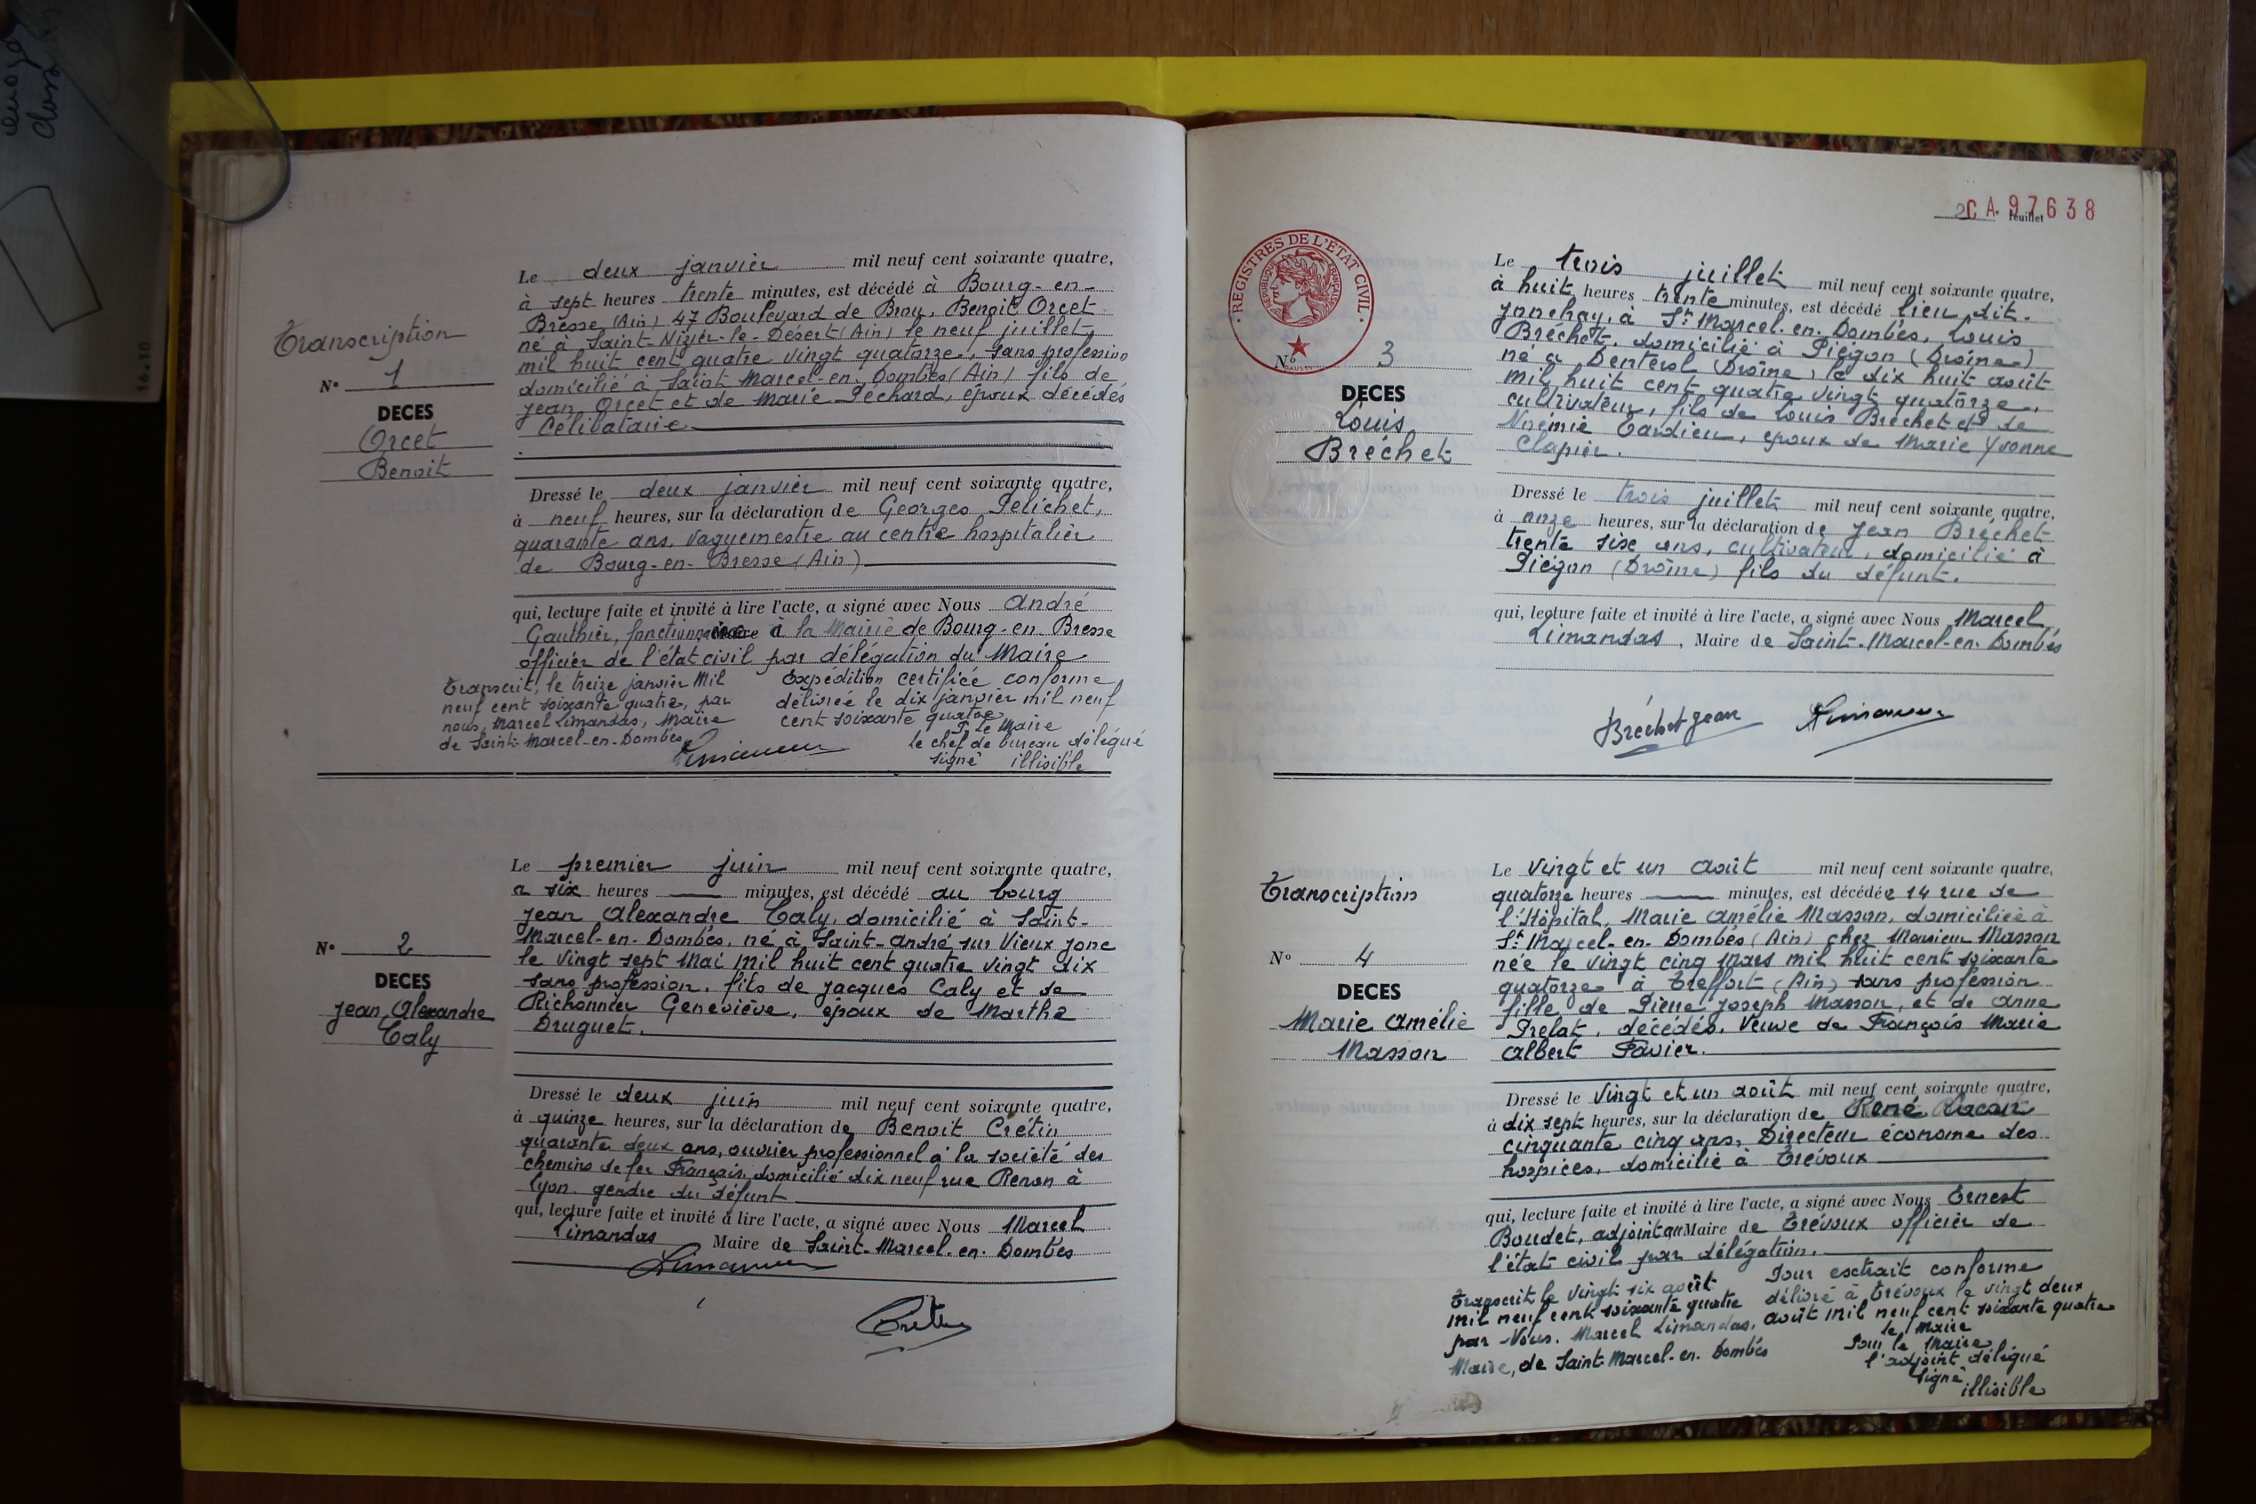 Transcription
N° 1
DECES
Orcet
Benoit
Le deux janvier mil neuf cent soixante quatre,
à sept heures trente minutes, est décédé à Bourg-en-
Bresse (Ain) 47 Boulevard de Brou, Benoit Orcet
né à Saint-Nizier-le-Désert (Ain) le neuf juillet
mil huit cent quatre vingt quatorze, sans profession
domicilié à Saint Marcel-en-Dombes (Ain) fils de
Jean Orcet et de Marie Péchard, époux décédés
Célibataire.
Dressé le deux janvier mil neuf cent soixante quatre,
à neuf heures, sur la déclaration de Georges Pélichet,
quarante ans, vaguemestre au centre hospitalier
de Bourg-en-Bresse (Ain)
qui, lecture faite et invité à lire l'acte, a signé avec Nous André
Gauthier, fonctionnaire à la Mairie de Bourg-en-Bresse
officier de l'état civil par délégation du Maire
Transcrit, le treize janvier Mil
neuf cent soixante quatre, par
nous, Marcel Limandas, Maire
de Saint-Marcel-en-Dombes
Expédition certifiée conforme
délivrée le dix janvier mil neuf
cent soixante quatre
P. le Maire
le chef de bureau délégué
signé illisible
N° 2
DECES
Jean Alexandre
Caly
Le premier juin mil neuf cent soixante quatre,
a six heures minutes, est décédé au bourg
Jean Alexandre Caly, domicilié à Saint-
Marcel-en-Dombes, né à Saint-André sur Vieux Jonc
le vingt sept Mai mil huit cent quatre vingt dix
sans profession, fils de Jacques Caly et de
Richonnier Geneviève, époux de Marthe
Druguet.
Dressé le deux juin mil neuf cent soixante quatre,
à quinze heures, sur la déclaration de Benoit Crétin
quarante deux ans, ouvrier professionnel à la société des
chemins de fer Français, domicilié dix neuf rue Renan à
Lyon gendre du défunt
qui, lecture faite et invité à lire l'acte, a signé avec Nous Marcel
Limandas Maire de Saint-Marcel-en-Dombes
CA 97638
2 feuillet
REGISTRES DE L'ETAT CIVIL
REPUBLIQUE FRANÇAISE
N° 3
DECES
Louis
Bréchet
Le trois juillet mil neuf cent soixante quatre,
à huit heures trente minutes, est décédé lieu dit
Jonchay, à St Marcel-en-Dombes, Louis
Bréchet, domicilié à Piégon (Drôme)
né à Venterol (Drôme), le dix huit août
mil huit cent quatre vingt quatorze,
cultivateur, fils de Louis Bréchet et de
Noémie Tardieu, époux de Marie Yvonne
Clapier.
Dressé le trois juillet mil neuf cent soixante quatre,
à onze heures, sur la déclaration de Jean Bréchet
trente six ans, cultivateur, domicilié à
Piégon (Drôme) fils du défunt.
qui, lecture faite et invité à lire l'acte, a signé avec Nous Marcel
Limandas, Maire de Saint-Marcel-en-Dombes
Bréchet Jean
Transcription
N° 4
DECES
Marie Amélie
Masson
Le vingt et un août mil neuf cent soixante quatre,
quatorze heures minutes, est décédée 14 rue de
l'Hôpital, Marie Amélie Masson, domiciliée à
St Marcel-en-Dombes (Ain) chez Monsieur Masson
née le vingt cinq Mars mil huit cent soixante
quatorze à Treffort (Ain) sans profession
fille de Pierre Joseph Masson, et de Anne
Prelat, décédés, veuve de François Marie
Albert Favier.
Dressé le vingt et un août mil neuf cent soixante quatre,
à dix sept heures, sur la déclaration de René Lacour
cinquante cinq ans, Directeur économe des
hospices, domicilié à Trévoux
qui, lecture faite et invité à lire l'acte, a signé avec Nous Ernest
Boudet, adjoint au Maire de Trévoux officier de
l'état civil par délégation.
Transcrit le vingt six août
mil neuf cent soixante quatre
par Nous, Marcel Limandas,
Maire, de Saint-Marcel-en-Dombes
Pour extrait conforme
délivré à Trévoux le vingt deux
août mil neuf cent soixante quatre
le Maire
Pour le Maire
l'adjoint délégué
signé
illisible